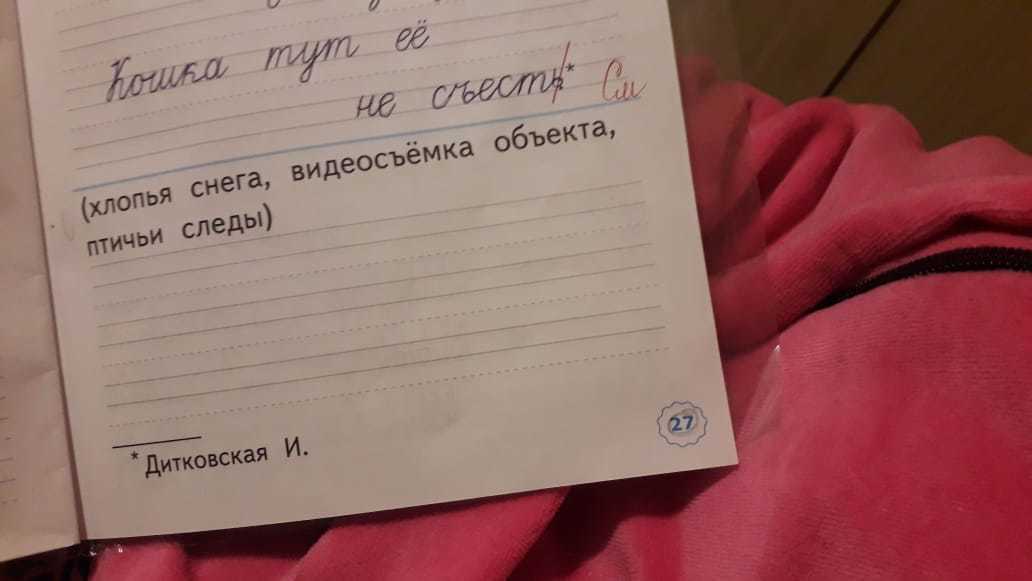 Кошка тут её
не съесть.* См
(хлопья снега, видеосъёмка объекта,
птичьи следы)
* Дитковская И.
27